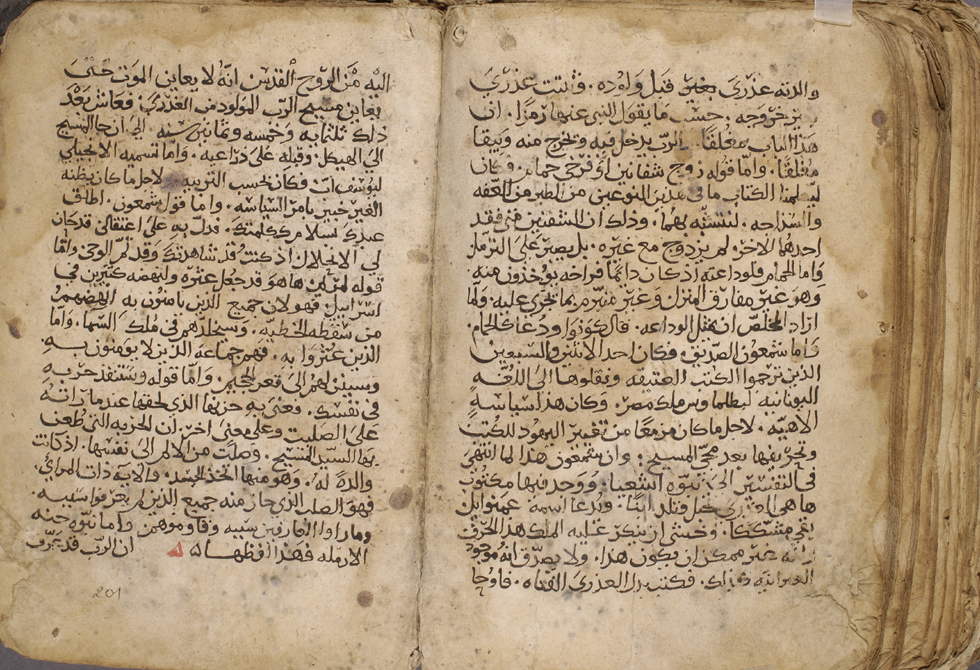 والدته عذرى بغير قبل ولوده. فثبتت عذرى
بغير خروجه. حسب ما يقول النبي عنها رمزا. ان
هذا الباب مغلقا. الرب يدخل فيه ويخرج منه ويبقا
مغلقا. واما قوله زوج شفانين او فرخي حمام. فكان
ليعلمنا الكتاب ما في هذين النوعين من الطير من العفه
والسداجه. لنتشبه بهما. وذلك ان الشفنين متى فقد
احدهما الاخر. لم يزدوج مع غيره. بل يصبر على الترمل
واما الحمام فلوداعته اذ كان دايما فراخه يوخذون منه
وهو غير مفارق المنزل وغير متبرم بما يجري عليه. ولما
اراد المخلص ان يمثل الوداعه. قال كونوا ودعا كالحمام
فاما شمعون الصديق. فكان احد الاثنين والسبعين
الذين ترجموا الكتب العتيقه ونقلوها الى اللغه
اليونانيه لبطلماوس ملك مصر. وكان هذا سياسة
الاهيه. لاجل ما كان مزمعا من تغيير اليهود للكتب
وتحريفها بعد مجي المسيح. وان شمعون هذا لما انتهى
في التفسير الى نبوه اشعيا. ووجد فيها مكتوب
ها هي العذرى تحبل وتلد ابنا. ويدعا اسمه عمنوايل
بقي متشككا. وخشي ان ينكر عليه الملك هذا الحرف
وانه غير ممكن ان يكون هذا. ولا يصدق انه موجود
العبرانيه كذلك. فكتب بدل العذرى الفتاه. فاوحا
اليه من الروح القدس انه لا يعاين الموت حتى
يعاين مسيح الرب المولود من العذرى. فعاش بعد
ذلك ثلثمايه وخمسه وثمانين سنه الى ان جا المسيح
الى الهيكل. وقبله على ذراعيه. واما تسميه الانجيلي
ليوسف اب. وكان بحسب التربيه لاجل ما كان يظنه
الغير خبير بامر السياسه. واما قول شمعون. اطلق
عبدك بسلام كسابق كلمتك. فدل به على اعتقالي قد كان
لي الانحلال اذ كنت قد شاهدتك وقد تم الوحي. واما
قوله لمريم ها هو قد جعل عثره ولنهضه كثيرين في
اسراييل. فهو لان جميع الذين يامنون به انهضهم
من سقطه الخطيه. وسيخلدهم في ملك السما. واما
الذين عثروا به. فهم جماعه الذين لا يومنون به
وسينزلهم الى قعر الجحيم. واما قوله وستنفذ حربه
في نفسك. فعنى به حزنها الذي لحقها عندما راته
على الصليب وعلى معنى اخر. ان الحربه التي طعن
بها السيد المسيح. وصلت من الالم الى نفسها. اذ كانت
والدة له. وهو منها اتخذ الجسد. والايه ذات المراي
فهو الصلب الذي جاز منه جميع الذين لم يعرفوا سببه
وماروا العارفين سببه وقاوموهم. واما نبوه حنه
الارمله فهذا لفظها ان الرب قد يعرف
201